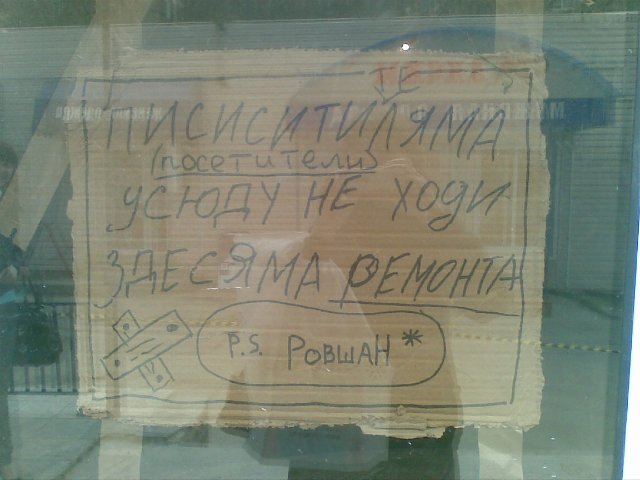 ТЕ
ПИСИСИТИЛЯМА
(посетители)
УСЮДУ НЕ ХОДИ
ЗДЕСЯМА РЕМОНТА
P.S. РОВШАН*